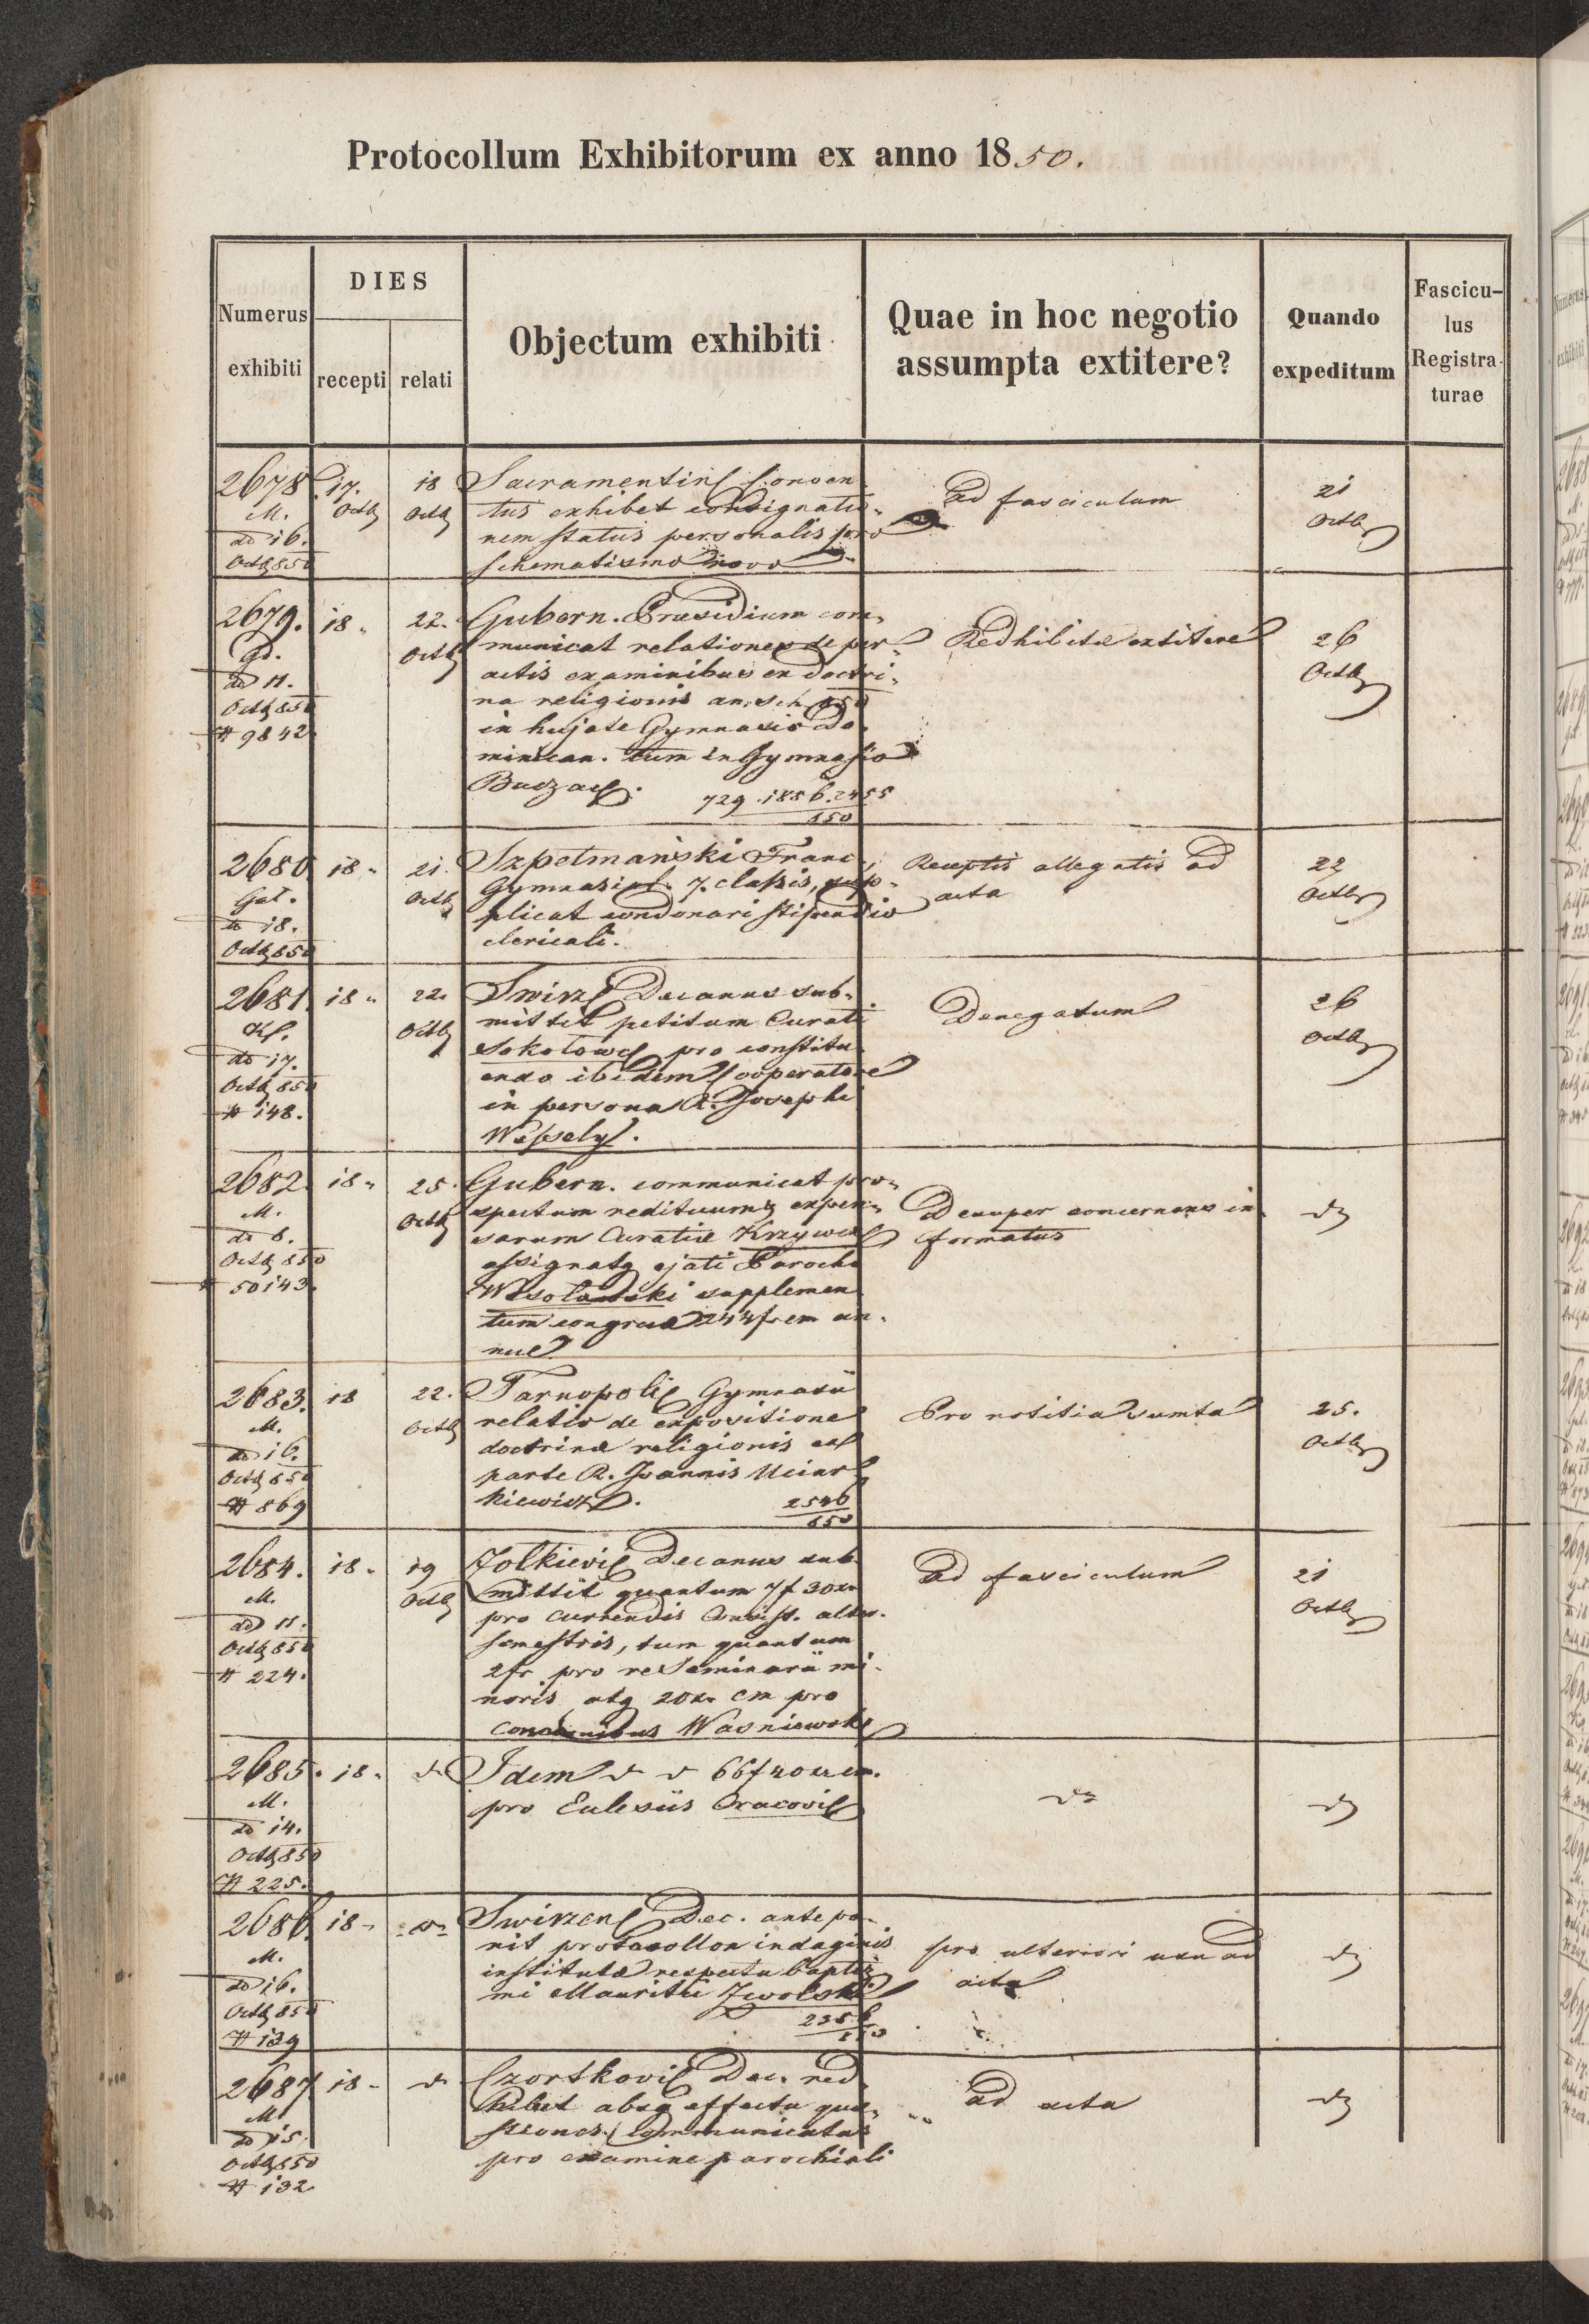 Protocollum Exhibitorum ex anno 1850.
Numerus exhibiti
DIES
recepti
relati
Objectum exhibiti
Quae in hoc negotio assumpta extitere?
Quando expeditum
Fascicu-
lus
Registra-
turae
2678 17. Octb 18 Octb
M.
do 16.
Octb 850
Sacramentin Conven
tus exhibet consignatio-
nem status personalis pro
schematismo novo
ad fasciculum
21
Octb
2679. 18 22. Octb
Gd.
do 11.
Octb 850
# 9842
Gubern. Praesidium com-
municat relationes de per-
actis examinibus ex doctri-
na religionis an. sch. 850
in hujate Gymnasio Do-
minican. tum in Gymnasio
Buczac.
729. 1856. 2455
850
Redhibitae extitere
26
Octb
2680 18 21. Octb
Gal.
do 18.
Octb 850
Szpetmański Franc.
Gymnasial. 7. classis, sup-
plicat condonari stipendio
clericali.
Receptis allegatis ad
acta
22
Octb
2681. 18 22. Octb
do 17.
Octb 850
# 148.
Swirz Decanus sub-
mittit petitum Curati
Sokolow pro constitu-
endo ibidem Cooperatore
in persona R. Josephi
Wessely.
Denegatum
26
Octb
2682. 18 25. Octb
M.
do 8.
Octb 850
# 50143.
Gubern. communicat pro-
spectum redituum & expen-
sarum Curatiae Krzywcz
assignatq ejati Parocho
Wesołowski supplemen
tum congruae 244f cm an-
nue.
Desuper concernens in-
formatus
do
2683. 18 22. Octb
M.
do 16.
Octb 850
# 869
Tarnopoli Gymnasii
relatio de expositione
doctrinae religionis ex
parte R. Joannis
kiewicz.
2546
850
Pro notitia sumta
25.
Octb
2684. 18 19 Octb
M.
do 11.
Octb 850
# 224.
Zolkievi Decanus sub-
mittit quantum 7f 30xr
pro currendis Consist. alter.
semestris, tum quantum
2fr pro re Seminarii mi-
noris atq 20xr cm pro
concionibus Wasniewski
ad fasciculum
21
Octb
2685. 18 do
M.
do 14.
Octb 850
# 225.
Idem do do 66f 20xr cm.
pro Eclesiis Cracovi
do
do
2686. 18 do
M.
do 16.
Octb 850
# 139
Swirzen Dec. antepo-
nit protocollon indaginis
institutae respectu baptis-
mi Mauritii
2356
850
pro ulteriori usu ad
acta
do
2687 18 do
M.
do 15.
Octb 850
# 132
Czortkovi Dec. red-
hibet absq effectu quae-
stiones communicatas
pro examine parochiali
ad acta
do